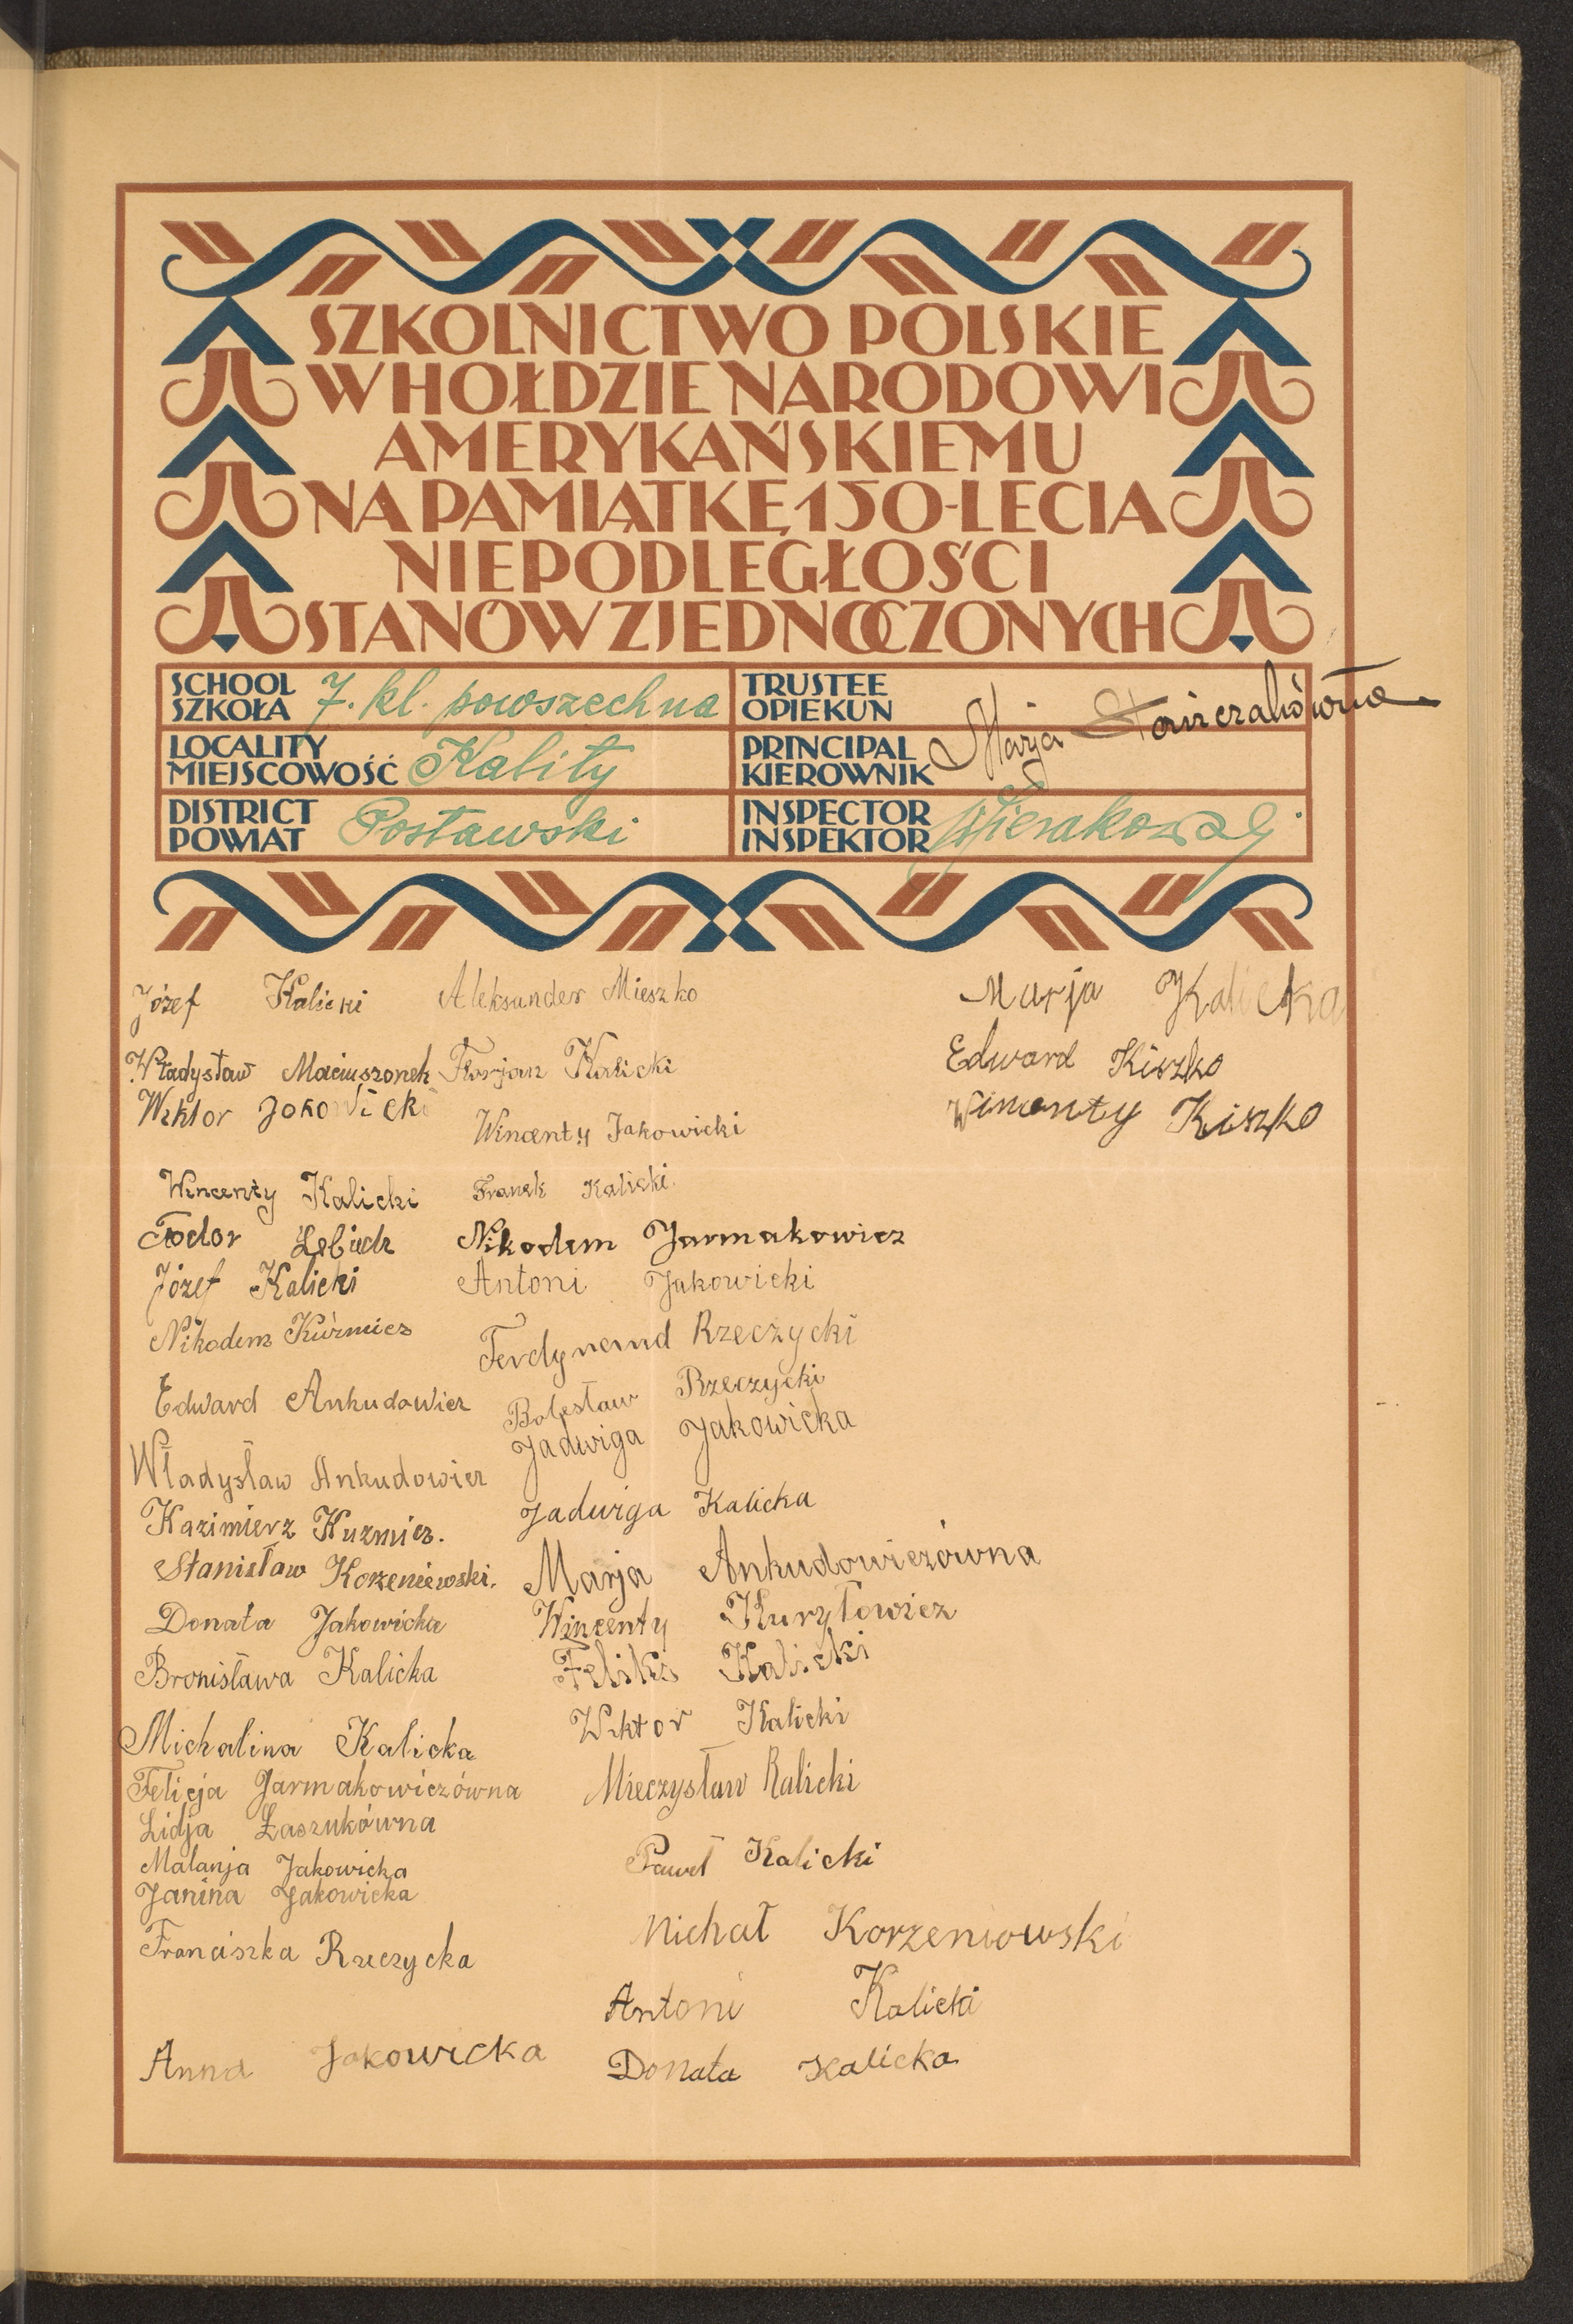 SZKOLNICTWO POLSKIE
W HOŁDZIE NARODOWI
AMERYKAŃSKIEMU
NA PAMIĄTKĘ 150-LECIA
NIEPODLEGŁOŚCI
STANÓW ZJEDNOCZONYCH
SCHOOL
SZKOŁA 7. kl. powszechna
LOCALITY
MIEJSCOWOŚĆ Kality
DISTRICT
POWIAT Postawski
TRUSTEE
OPIEKUN
PRINCIPAL
KIEROWNIK Marja
INSPECTOR
INSPEKTOR
Józef Kalicki
Władysław Maciuszonek
Wiktor Jakowicki
Wincenty Kalicki
Fodor
Józef Kalicki
Nikodem Kuźmicz
Edward Ankudowicz
Władysław Ankudowicz
Kazimierz Kuzmicz.
Stanisław Korzeniewski.
Donata Jakowicka
Bronisława Kalicka
Michalina Kalicka
Felicja Jarmakowiczówna
Lidja Łaszukówna
Malanja Jakowicka
Janina Jakowicka
Franciszka Rzeczycka
Anna Jakowicka
Aleksander Mieszko
Florjan Kalicki
Wincenty Jakowicki
Franek Kalicki.
Nikodem Jarmakowicz
Antoni Jakowicki
Ferdynand Rzeczycki
Bolesław Rzeczycki
Jadwiga Jakowicka
Jadwiga Kalicka
Marja Ankudowiczówna
Wincenty Kuryłowicz
Feliks Kalicki
Wiktor Kalicki
Mieczysław Kalicki
Paweł Kalicki
Michał Korzeniowski
Antoni Kalicki
Donata Kalicka
Marja Kalicka
Edward Kiszko
Wincenty Kiszko